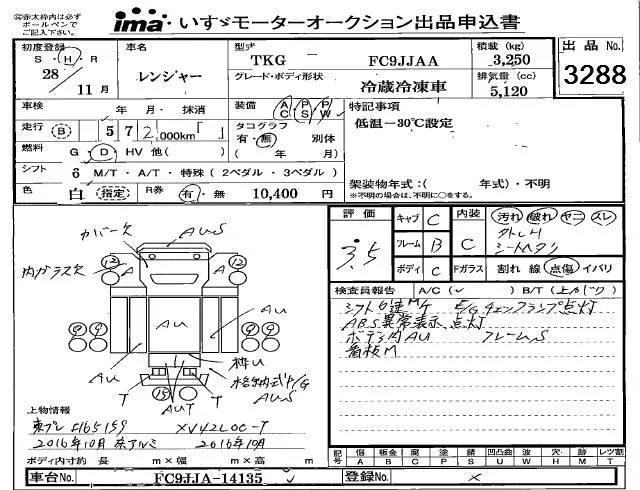 ※赤太枠内は必ず
ボールペンで
ご記入ください。
ima いすゞモーターオークション出品申込書
初度登録 車名 型式 積載 (kg) 出品 No.
S・H・R
28/11月 レンジャー TKG FC9JJAA 3,250 3288
グレード・ボディ形状 排気量 (cc)
冷蔵冷凍車 5,120
車検 年 月・ 抹消 装備 AC PS PW 特記事項
走行 B 5 7 2,000km「 」 タコグラフ 有・無 別体 低温-30℃設定
燃料 G・D・HV 他( ) ( 年 月)
シフト 6 M/T・A/T・特殊(2ペダル・3ペダル) 架装物年式:( 年式)・不明
色 白 (指定) R券 有・無 10,400 円 ※不明の場合は、不明に○をする。
評価 3.5
キャブ C 内装 C 汚れ 破れ ヤニ スレ
フレーム B
ボディ C Fガラス 割れ 線 点傷 イバリ
カバー欠 AUS
内ガラス欠 12 A A 12
AU AU AU
枠U
格納式P/G
T T AUS
15 AUT
検査員報告 A/C(✓ ) B/T(上がり)
シフト6速M/T E/Gチェックランプ点灯
ABS異常表示、点灯
ボデー内AU フレームS
看板M
上物情報
東プレ XV42LOC-T
2016年10月 東アルミ 2016年10月
ボディ内寸約 長 m×幅 m×高 m
記号 傷 A 板金 B 腐 C 塗 P 錆 S 凹凸曲 U 波 W 穴 H 跡 M レンズ割 T
車台No. FC9JJA-14135 登録No.